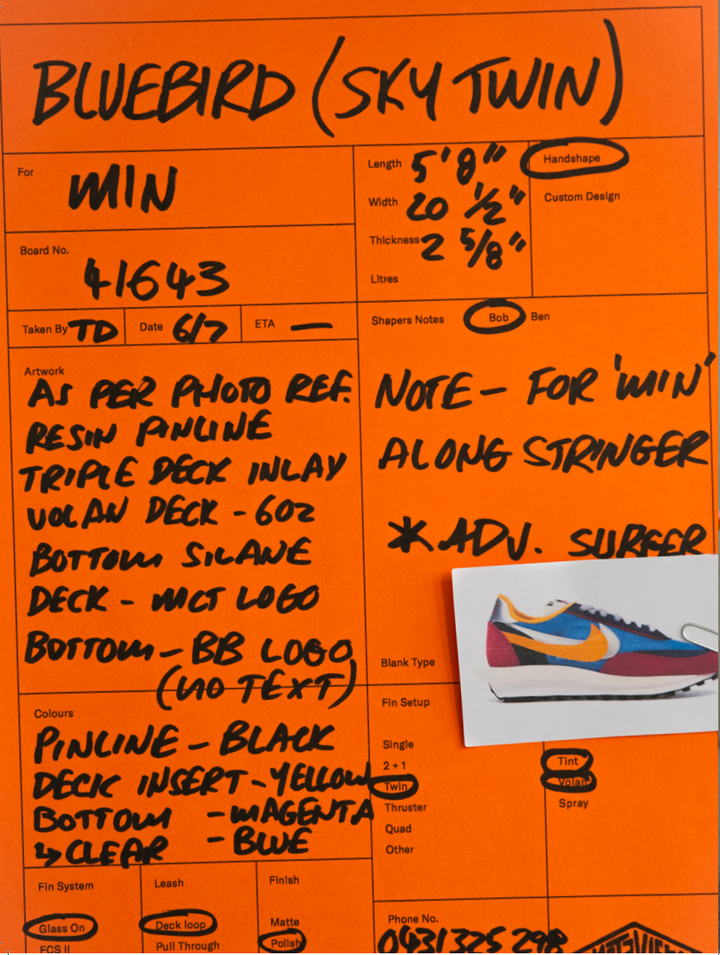 BLUEBIRD (SKY TWIN)
For
MIN
Board No.
41643
Taken By TD Date 6/7 ETA —
Length 5'8"
Width 20 1/2"
Thickness 2 5/8"
Litres
Handshape
Custom Design
Shapers Notes Bob Ben
NOTE - FOR 'MIN'
ALONG STRINGER
* ADV. SURFER
Artwork
AS PER PHOTO REF.
RESIN PINLINE
TRIPLE DECK INLAY
VOLAN DECK - 6OZ
BOTTOM SILANE
DECK - MCT LOGO
BOTTOM - BB LOGO
(NO TEXT)
Blank Type
Colours
PINLINE - BLACK
DECK INSERT - YELLOW
BOTTOM - MAGENTA
↳ CLEAR - BLUE
Fin Setup
Single
2 + 1
Twin
Thruster
Quad
Other
Tint
Volan
Spray
Fin System
Glass On
FCS II
Leash
Deck loop
Pull Through
Finish
Matte
Polish
Phone No.
0431325298